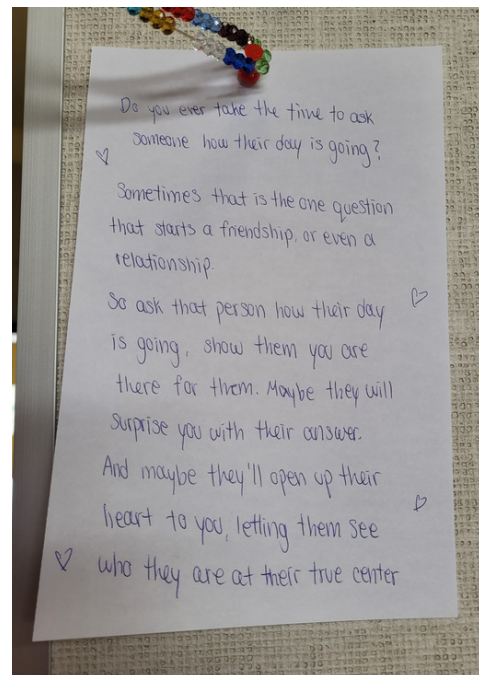 Do you ever take the time to ask
someone how their day is going?
Sometimes that is the one question
that starts a friendship, or even a
relationship.
So ask that person how their day
is going, show them you are
there for them. Maybe they will
surprise you with their answer.
And maybe they'll open up their
heart to you, letting them see
who they are at their true center